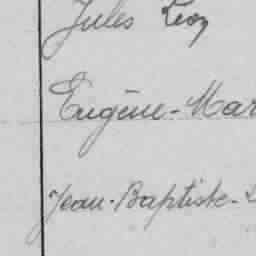 Jules Léon
Eugène-Mar
Jean-Baptiste-